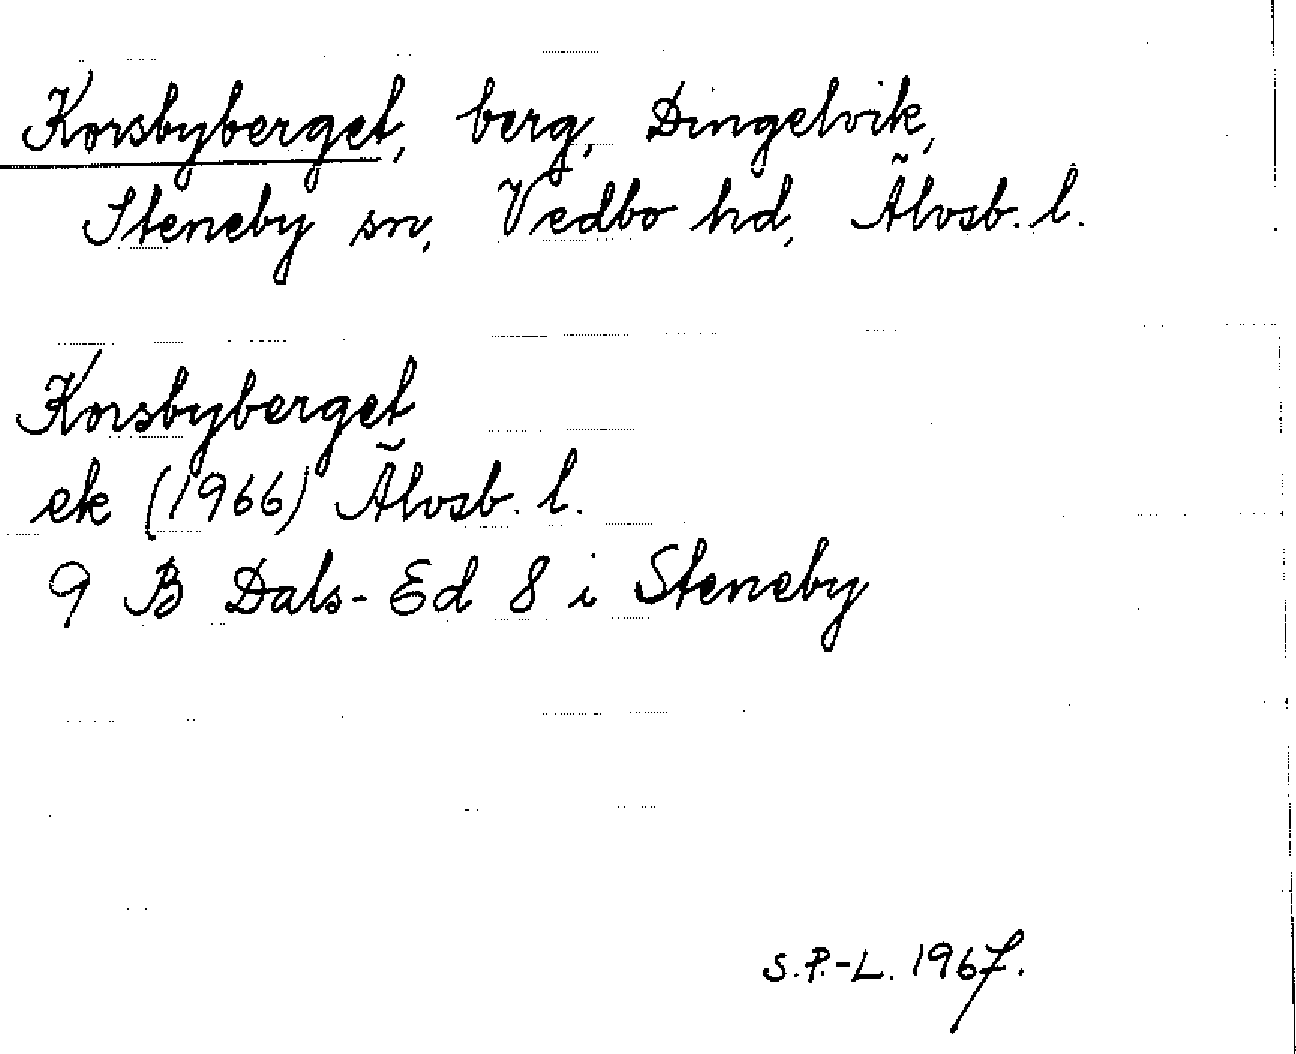 Korsbyberget, berg, Dingelvik,
Steneby sn, Vedbo hd, Älvsb. l.
Korsbyberget
ek (1966) Älvsb. l.
9 B Dals-Ed 8 i Steneby
S.P.-L. 1967.